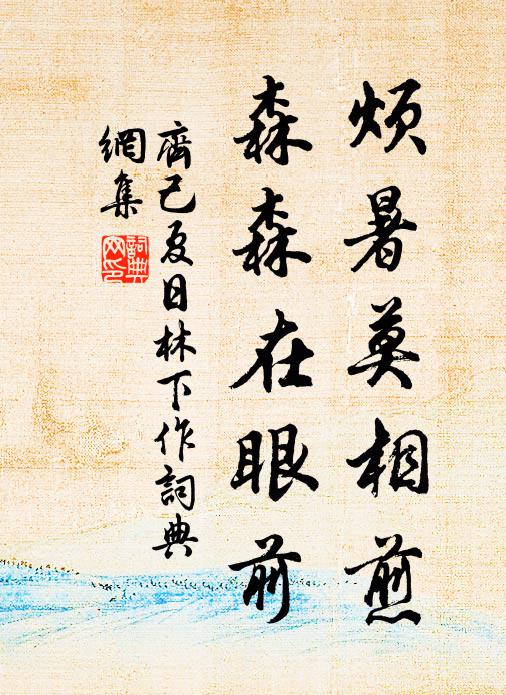 煩暑莫相煎
森森在眼前
齊己夏日林下作詞典
網集
詞典
网印